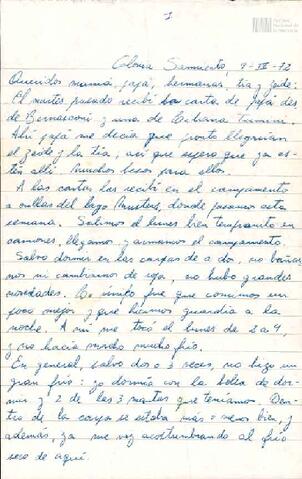 1
Colonia Sarmiento, 9-VII-72
Queridos mamá, papá, hermanas, tía y Zeide:
El martes pasado recibí la carta de papá des
de Bernasconi y una de
Ahí papá me decía que pronto llegarían
el Zeide y la tía, así que espero que ya es-
tén allí. Muchos besos para ellos.
A las cartas las recibí en el campamento
a orillas del lago Musters, donde pasamos esta
semana. Salimos el lunes bien tempranito en
camiones, llegamos y armamos el campamento.
Salvo dormir en las carpas de a dos, no bañar-
nos ni cambiarnos de ropa, no hubo grandes
novedades. Lo único fue que comimos un
poco mejor y que hicimos guardia a la
noche. A mí me tocó el lunes de 2 a 4,
y no hacía mucho mucho frío.
En general, salvo 2 o 3 veces, no hizo un
gran frío: yo dormía con la bolsa de dor-
mir y 2 de las 3 mantas que teníamos. Den-
tro de la carpa se estaba más o menos bien, y
además, ya me voy acostumbrando al frío
seco de aquí.